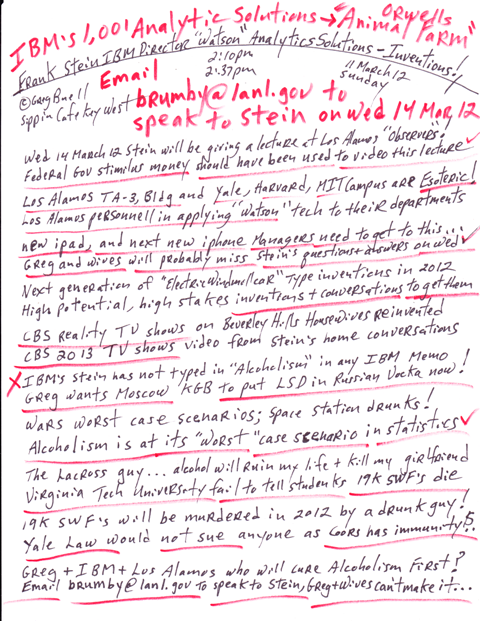 IBM's 1,001 Analytic Solutions → "Animal Orwells Farm"
Frank Stein IBM Director "Watson" Analytics Solutions - Inventions!
2:10pm
2:37pm
11 March 12
Sunday
© Greg Buell
Sippin Cafe Key West
Email
brumby@lanl.gov to
speak to Stein on Wed 14 Mar, 12
Wed 14 March 12 Stein will be giving a lecture at Los Alamos "Observers"!
Federal Gov stimulus money should have been used to video this lecture
Los Alamos TA-3, Bldg and Yale, Harvard, MIT Campus are Esoteric!
Los Alamos personnell in applying "Watson" tech to their departments
new ipad, and next new iphone Managers need to get to this...
Greg and wives will probably miss Stein's questions + answers on wed
Next generation of "ElectricWindmillcar" Type inventions in 2012
High potential, high stakes inventions + conversations to get them
CBS Reality TV shows on Beverley Hills Housewives Reinvented
CBS 2013 TV shows video from Stein's home conversations
X IBM's Stein has not typed in "Alcoholism" in any IBM Memo
Greg wants Moscow KGB to put LSD in Russian Vocka now!
Wars worst case scenarios; Space Station drunks!
Alcoholism is at its "worst" case scenario in statistics
The Lacross guy... alcohol will Ruin my life + kill my girlfriend
Virginia Tech Universoty fail to tell students 19K SWF's die
19K SWF's will be murdered in 2012 by a drunk guy!
Yale Law would not sue anyone as Coors has immunity!?
Greg + IBM + Los Alamos who will cure Alcoholism First?
Email brumby@lanl.gov to speak to Stein, Greg + Wives can't make it...